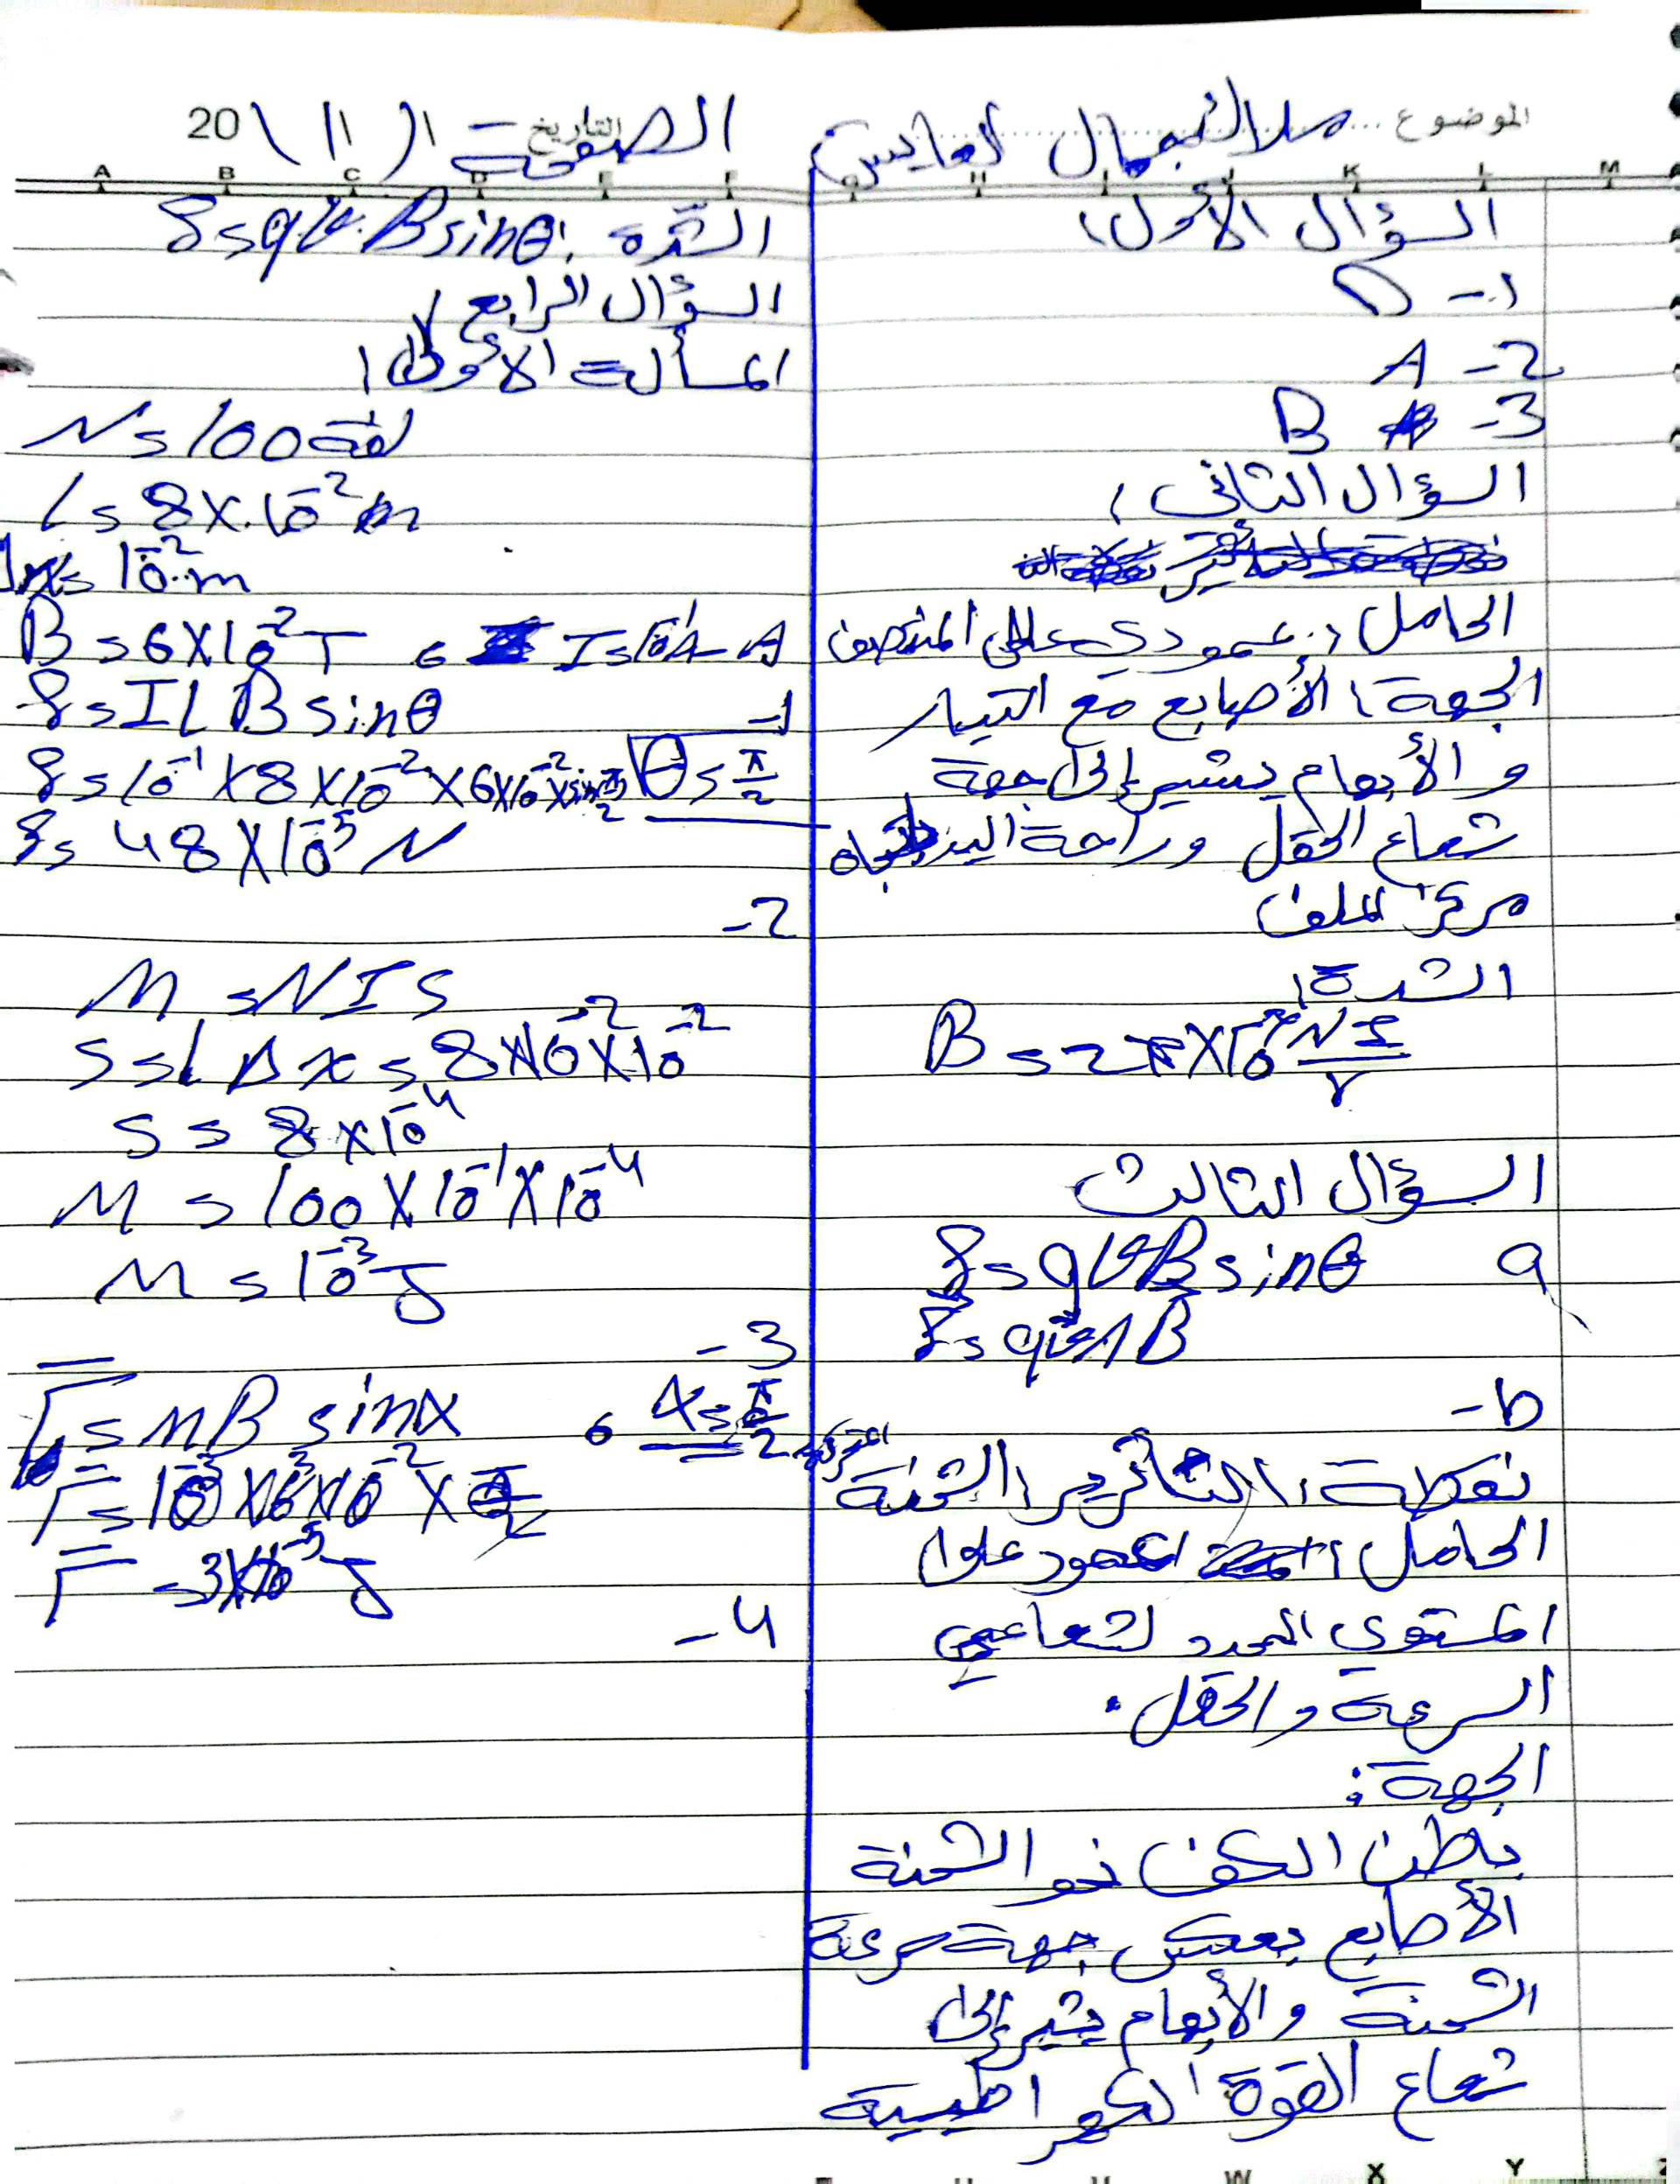 الموضوع
التاريخ
20
الصفحة (١١)
A B C D E F G H I J K L M
السؤال الأول:
1- D
2- A
3- B
السؤال الثاني:
الحامل: عمودي على المنتصف
الجهة: الأصابع مع التيار
و الأبهام يشير إلى جهة
شعاع الحقل وراحة اليد باتجاه
مركز الملف
الشدة:
B = 2π × 10⁻⁷ NI/r
السؤال الثالث
a f = qvB sinθ
f = qv∧B
b-
نقطة التأثير: الشحنة المتحركة
الحامل: عمود على
المستوي المحدد لشعاعي
السرعة والحقل.
الجهة:
باطن الكف نحو الشحنة
الأصابع بعكس جهة سرعة
الشحنة والأبهام يشير إلى
شعاع القوة الكهراطيسية
الشدة: f = qv.B sinθ
السؤال الرابع:
المسألة الأولى:
N = 100 لفة
L = 8 × 10⁻² m
= 10⁻² m
B = 6 × 10⁻² T ، I = 10⁻¹ A
1-
f = I L B sinθ
f = 10⁻¹ × 8 × 10⁻² × 6 × 10⁻² × sin π/2 θ = π/2
f = 48 × 10⁻⁵ N
2-
M = N I S
S = L Δx = 8 × 10⁻² × 10⁻²
S = 8 × 10⁻⁴
M = 100 × 10⁻¹ × 10⁻⁴
M = 10⁻³ J
3-
Γ = MB sinα ،
Γ = 10⁻³ × 6 × 10⁻² × π/2
Γ = 3 × 10⁻⁵ J
4-
W X Y